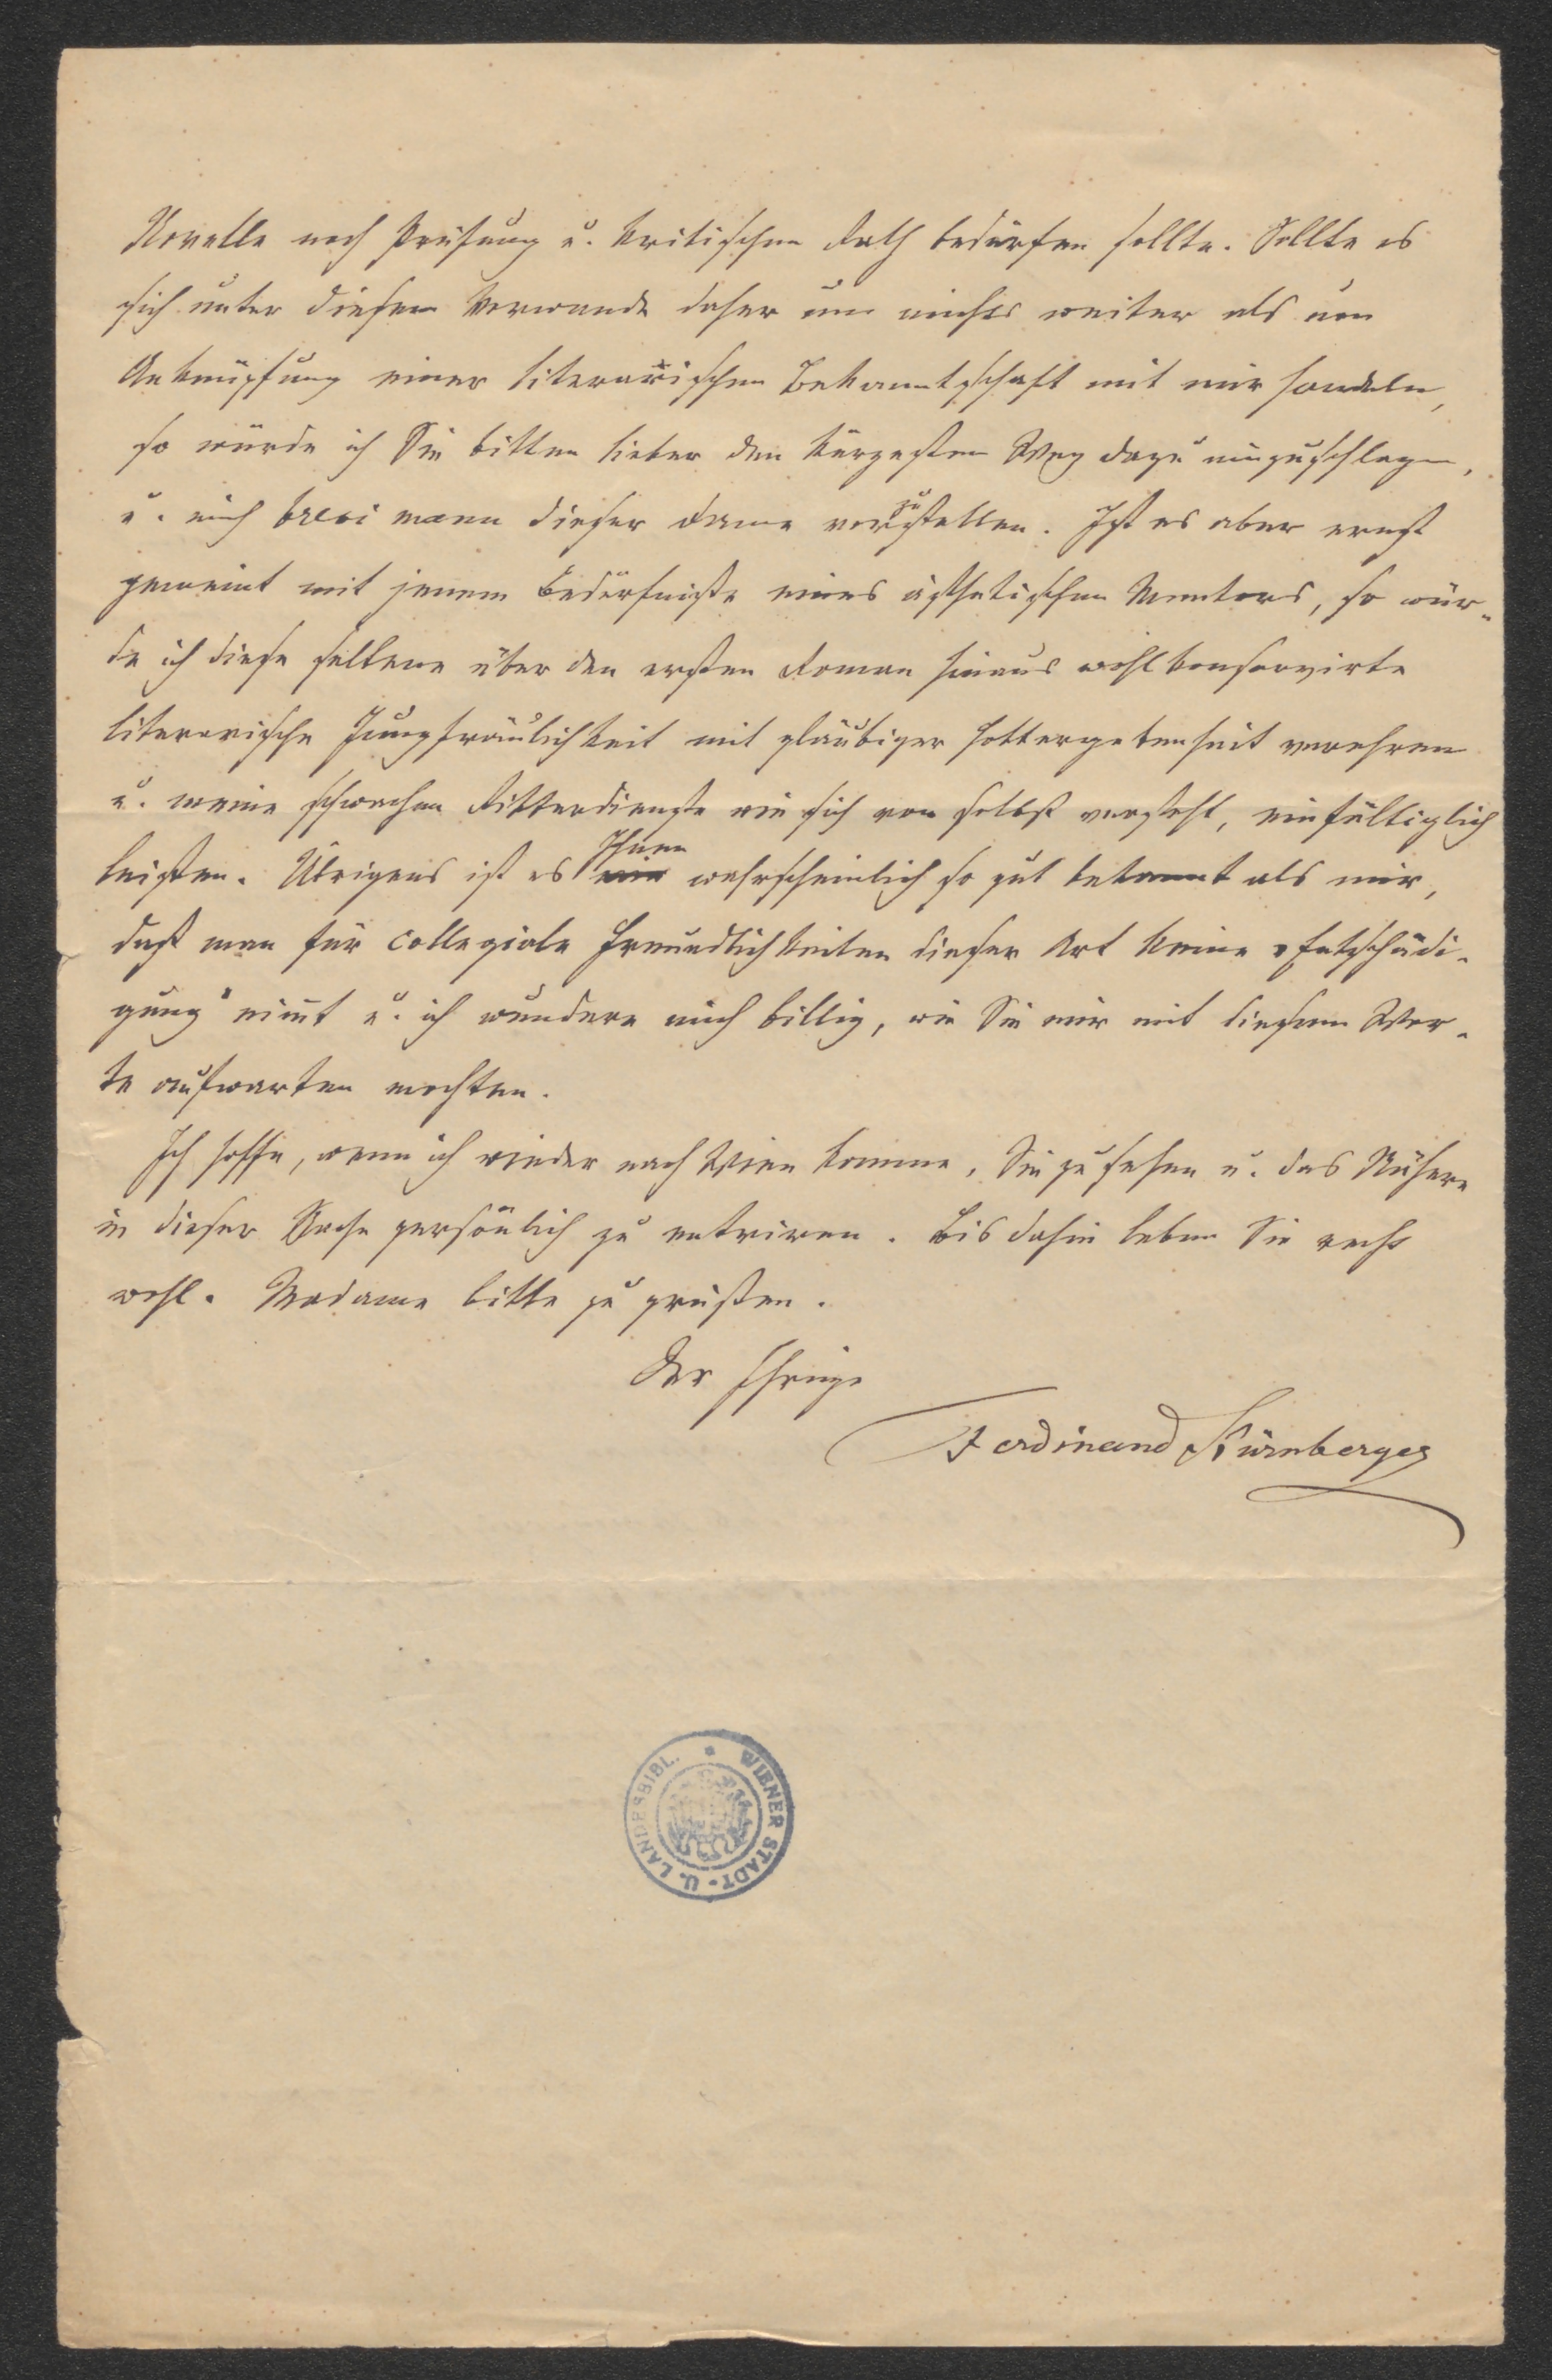 Novelle noch Prüfung u. kritischen Rath bedürfen sollte. Sollte es
sich unter diesem Vorwande daher um nichts weiter als um
Anknüpfung einer literarischen Bekanntschaft mit mir handeln,
so würde ich Sie bitten lieber den kürzesten Weg dazu einzuschlagen,
u. mich brevi manu dieser Dame vorzustellen. Ist es aber ernst
gemeint mit jenem Bedürfniße eines ästhetischen Mentors, so wür-
de ich diese seltene über den ersten Roman hinaus wohlkonservirte
literarische Jungfräulichkeit mit gläubiger Gottergebenheit verehren
u. meine schwachen Ritterdienste wie sich von selbst versteht, einfältiglich
leisten. Übrigens ist es Ihnen wahrscheinlich so gut bekannt als mir,
daß man für collegiale Freundlichkeiten dieser Art keine „Entschädi-
gung" nimt u. ich wundere mich billig, wie Sie mir mit diesem Wor-
te aufwarten mochten.
Ich hoffe, wenn ich wieder nach Wien komme, Sie zu sehen u. das Nähere
in dieser Sache persönlich zu entriren. Bis dahin leben Sie recht
wohl. Madame bitte zu grüßen.
Der Ihrige
Ferdinand Kürnberger
WIENER STADT- U. LANDESBIBL.